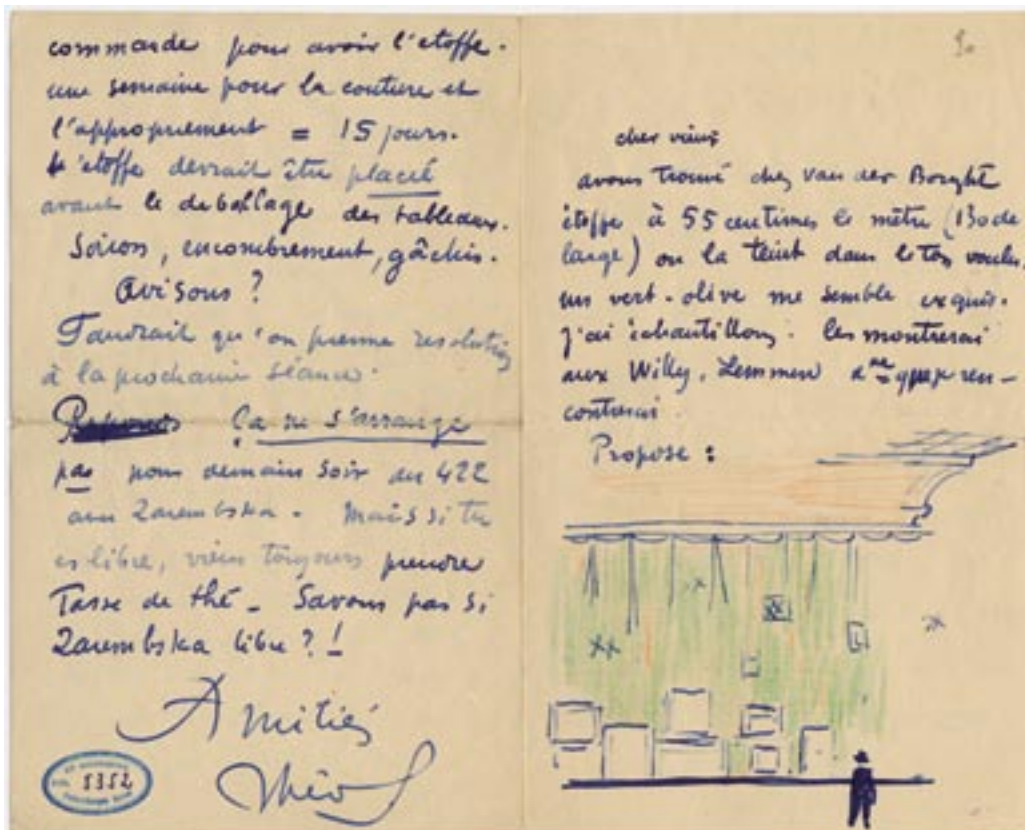 commande pour avoir l'etoffe.
une semaine pour la couture et
l'appropriement = 15 jours.
L'etoffe devrait être placée
avant le deballage des tableaux.
Sinon, encombrement, gâchis.
Avisons ?
Faudrait qu'on prenne resolution
à la prochaine séance.
Ça ne s'arrange
pas pour demain soir au 422
avec Zarembska. Mais si tu
es libre, viens toujours prendre
Tasse de thé _ Savons pas si
Zarembska libre ? !
Amitiés
Théo
5352
cher vieux
avons trouvé chez Van der Borght
étoffe à 55 centimes le mètre (130 de
large) on la teint dans le ton voulu,
un vert-olive me semble exquis.
j'ai échantillons. les montrerai
aux Willy, Lemmen que je ren-
contrerai.
Propose :